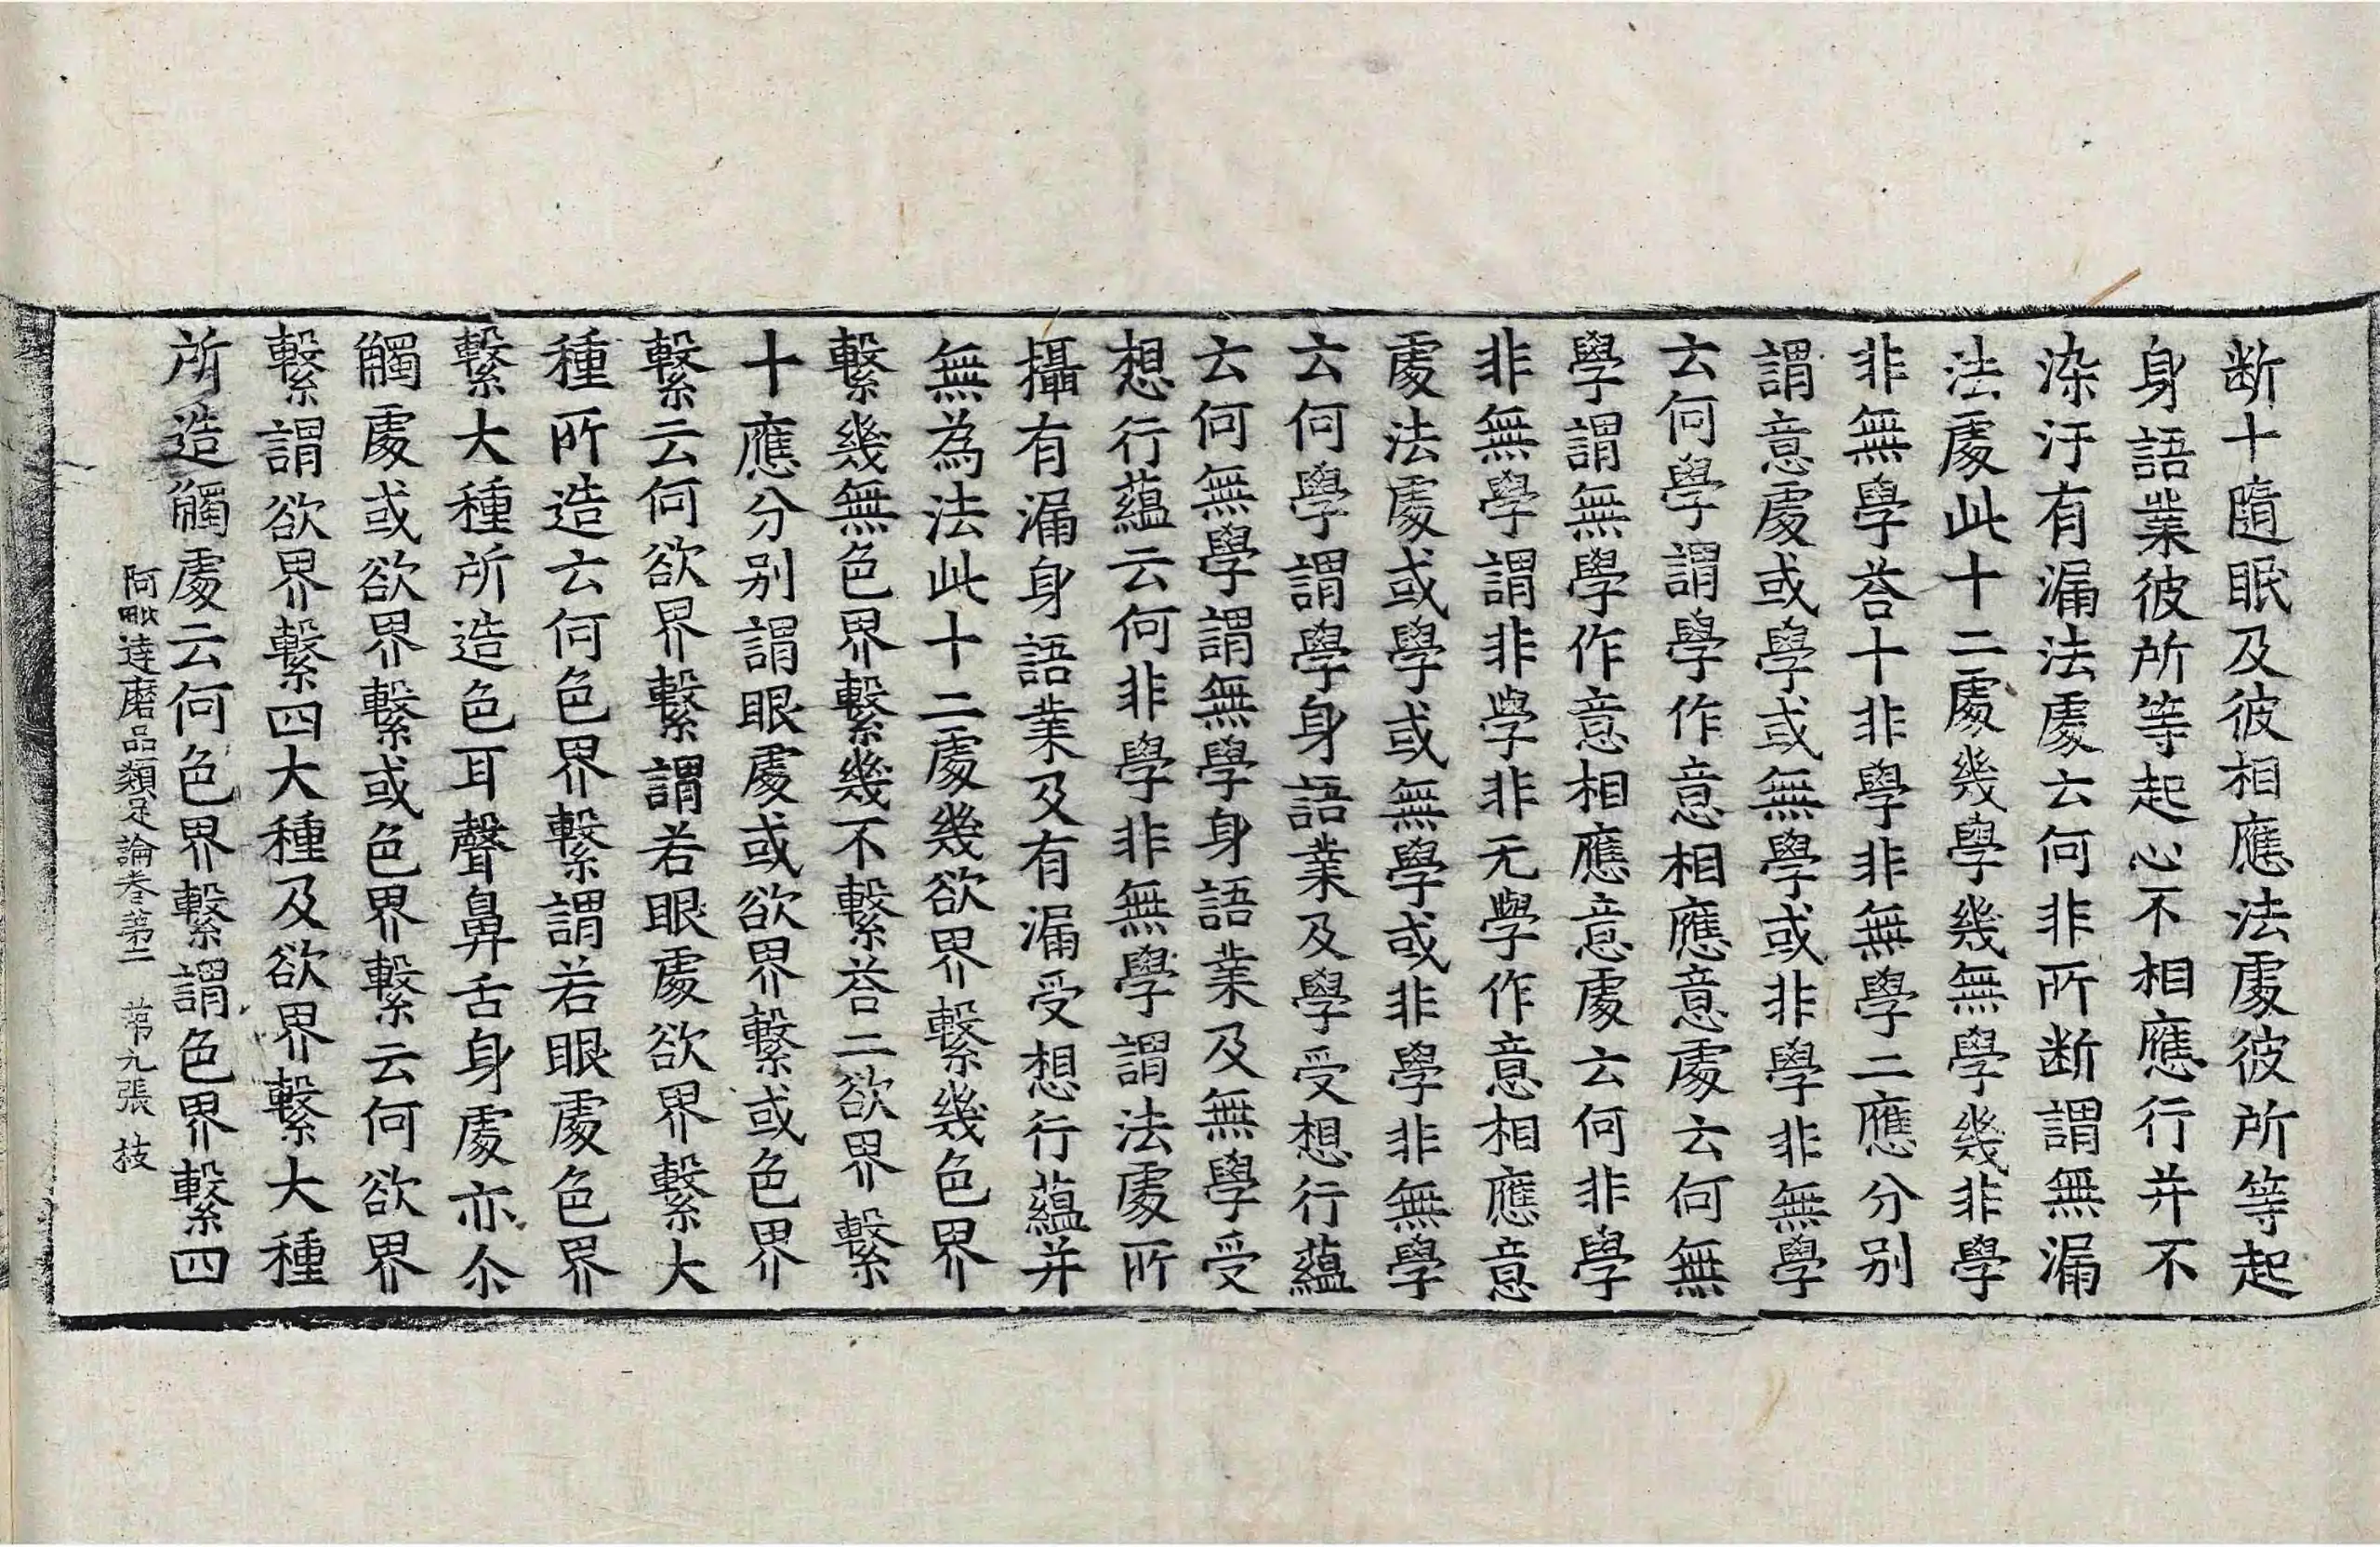 断十隨眠及彼相應法處彼所等起
身語業彼所等起心不相應行并不
染汙有漏法處云何非所断謂無漏
法處此十二處幾學幾無學幾非學
非無學荅十非學非無學二應分别
謂意處或學或無學或非學非無學
云何學謂學作意相應意處云何無
學謂無學作意相應意處云何非學
非無學謂非學非无學作意相應意
處法處或學或無學或非學非無學
云何學謂學身語業及學受想行蘊
云何無學謂無學身語業及無學受
想行蘊云何非學非無學謂法處所
攝有漏身語業及有漏受想行蘊并
無為法此十二處幾欲界繫幾色界
繫幾無色界繫幾不繫荅二欲界繫
十應分别謂眼處或欲界繫或色界
繫云何欲界繫謂若眼處欲界繫大
種所造云何色界繫謂若眼處色界
繫大種所造色耳聲鼻舌身處亦尒
觸處或欲界繫或色界繫云何欲界
繫謂欲界繫四大種及欲界繫大種
所造觸處云何色界繫謂色界繫四
阿毗達磨品類足論卷第二 第九張 枝